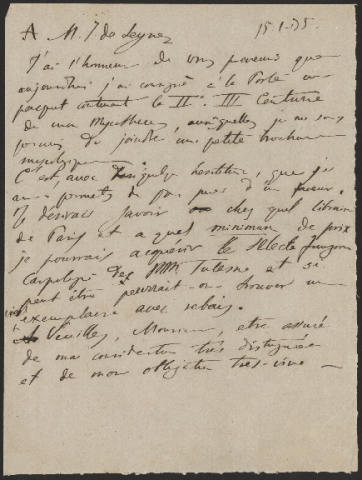 A M. J de Seynes 15.1.75.
J'ai l'honneur de vous prevenir que
aujourd'hui j'ai consigné à la Poste un
paquet contenant la IIe. III Centurie
de mon Mycotheca, auxquelles je me suis
permis de joindre une petite brochure
mycologique.
C'est avec quelque hésitation, que je
me permets de vous prier d'un faveur.
Je désirais savoir chez quel libraire
de Paris et a quel minimum de prix
je pourrais acquérir le Selecta fungorum
Carpologia des MM Tulasne et si
peut être pourrait-on trouver un
exemplaire avec rabais.
Veuillez, Monsieur, etre assuré
de ma consideration très distinguée
et de mon obligation très-vive